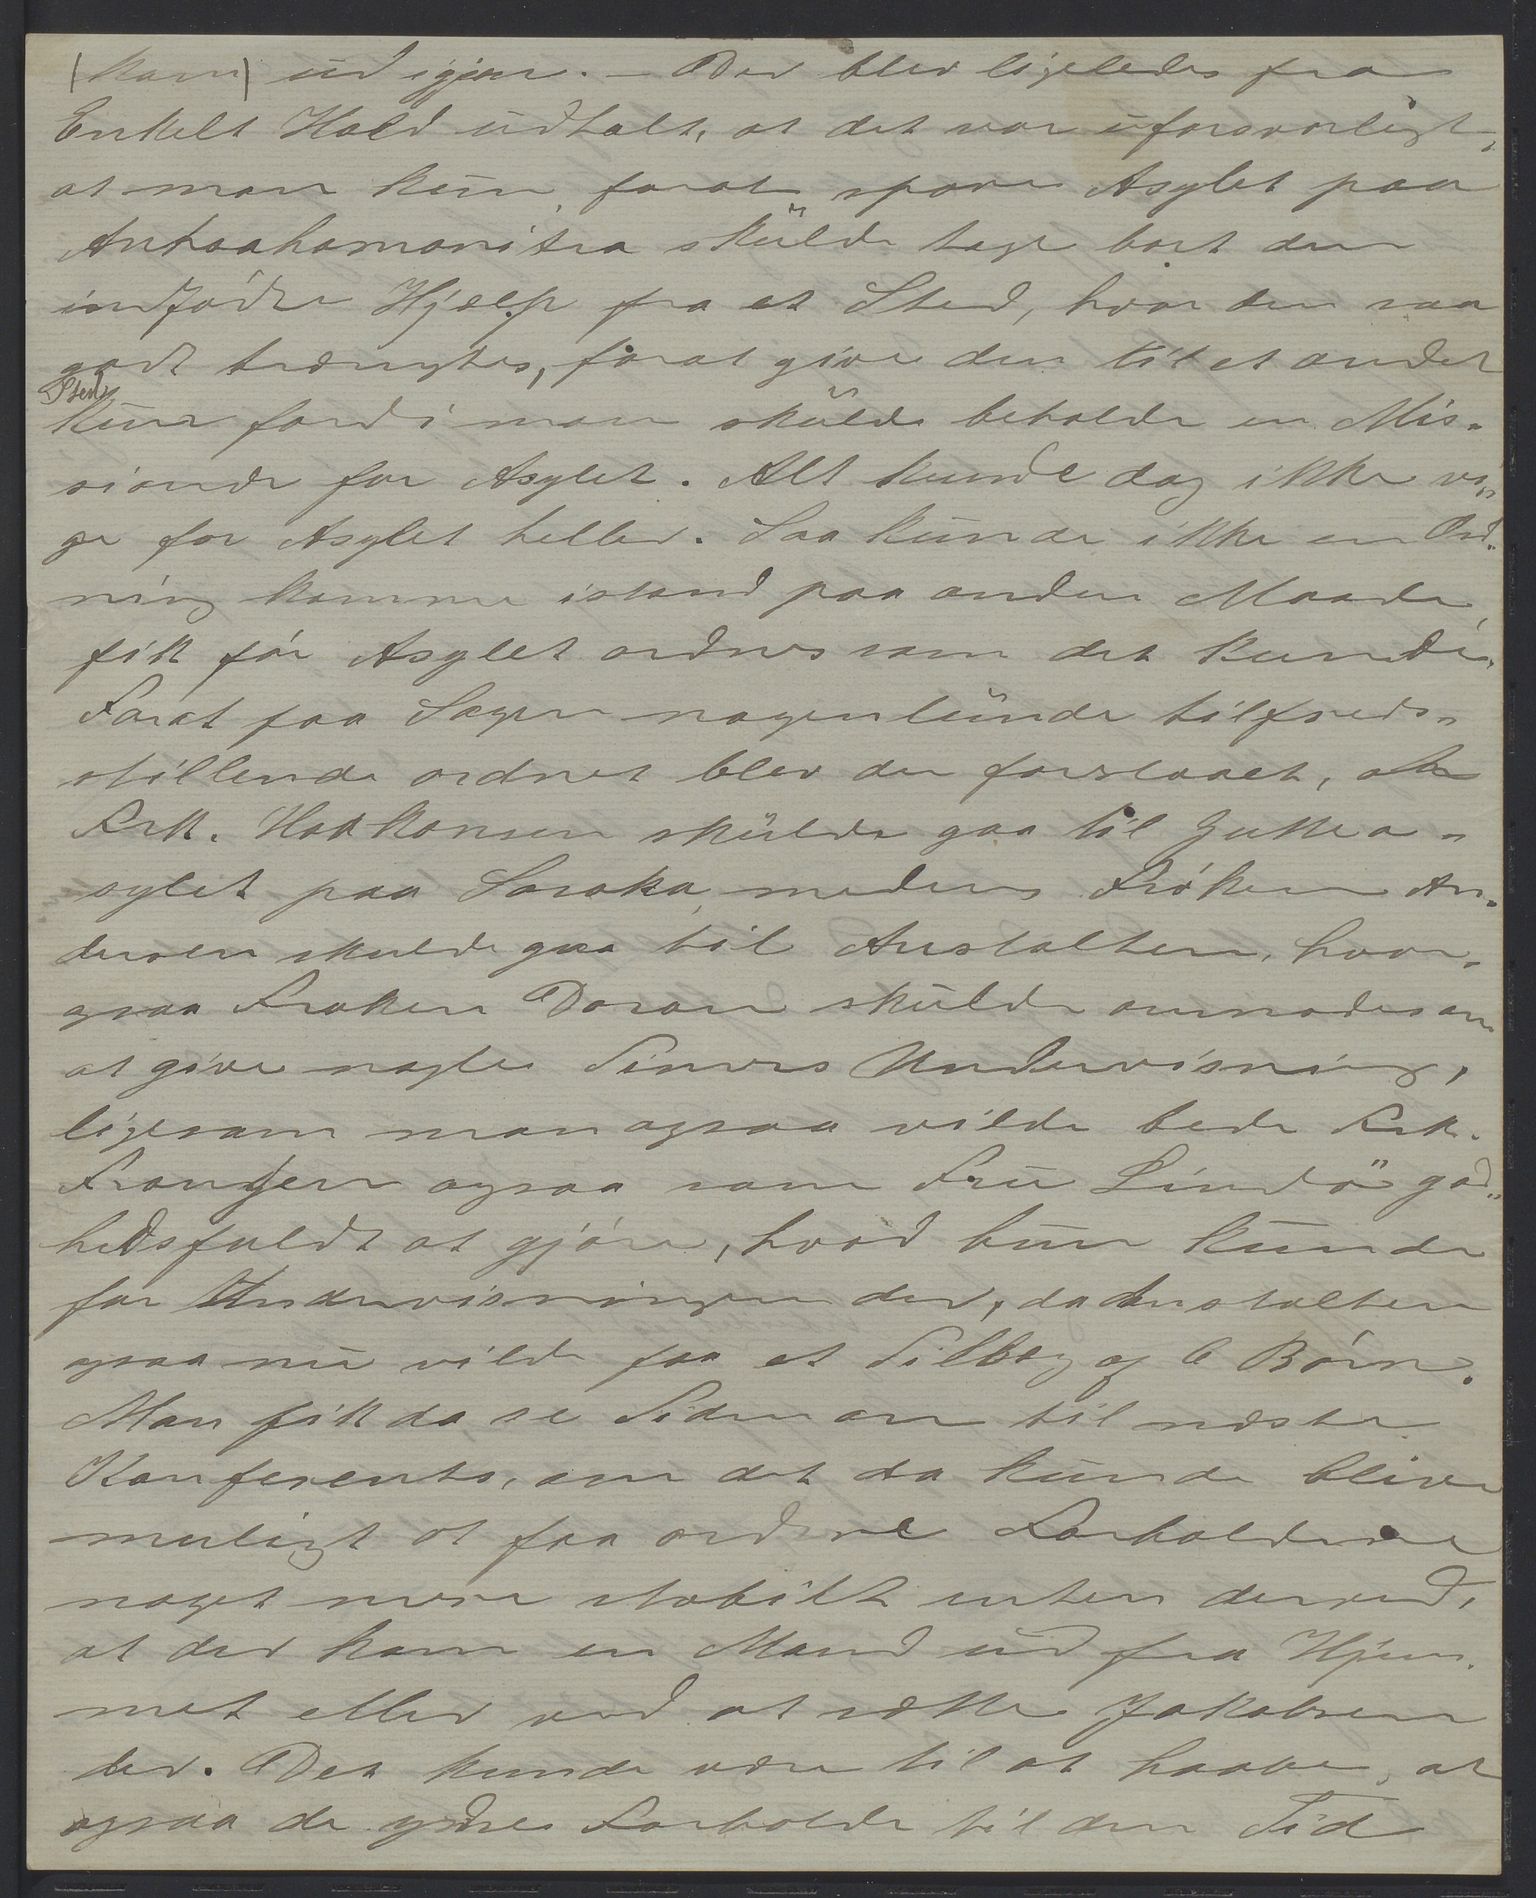 (kom) ud igjen. – Der blev ligeledes fra
Enkelt Hold udtalt, at det var uforsvarligt,
at man kun, forat spare Asylet paa
Antsahamanitra skulde tage bort den
indfødte Hjælp fra et Sted, hvor den saa
godt trængtes, forat give den til et andet
Sted,
kun fordi man skulde beholde en Mis-
sionær for Asylet. Alt kunde dog ikke vi-
ge for Asylet heller. Saa kunde ikke en Ord-
ning komme istand paa anden Maade,
fik for Asylet ordnes som det kunde.
Forat faa Sagen nogenlunde tilfreds-
stillende ordnet blev der foreslaaet, at
Frk. Haakonsen skulde gaa til Jutte a-
sylet paa Soraka, medens Frøken An-
dersen skulde gaa til Anstalten, hvor
ogsaa Frøken Doran skulde anmodes om
at give nogle Timers Undervisning,
ligesom man ogsaa vilde bede Frk.
Frantzen ogsaa som Fru Lindø god-
hedsfuldt at gjøre, hvad hun kunde
for Undervisningen der, da Anstalten
ogsaa nu vilde faa et Tillæg af 6 Børn.
Man fik da se Tiden an til næste
Konferents, om det da kunde blive
muligt at faa ordne Forholdene
noget mere stabilt enten derved,
at der kom en Mand ud fra Hjem-
met eller ved at sætte Jakobsen
der. Det kunde være til at haabe, at
ogsaa de ydre Forholde til den Tid